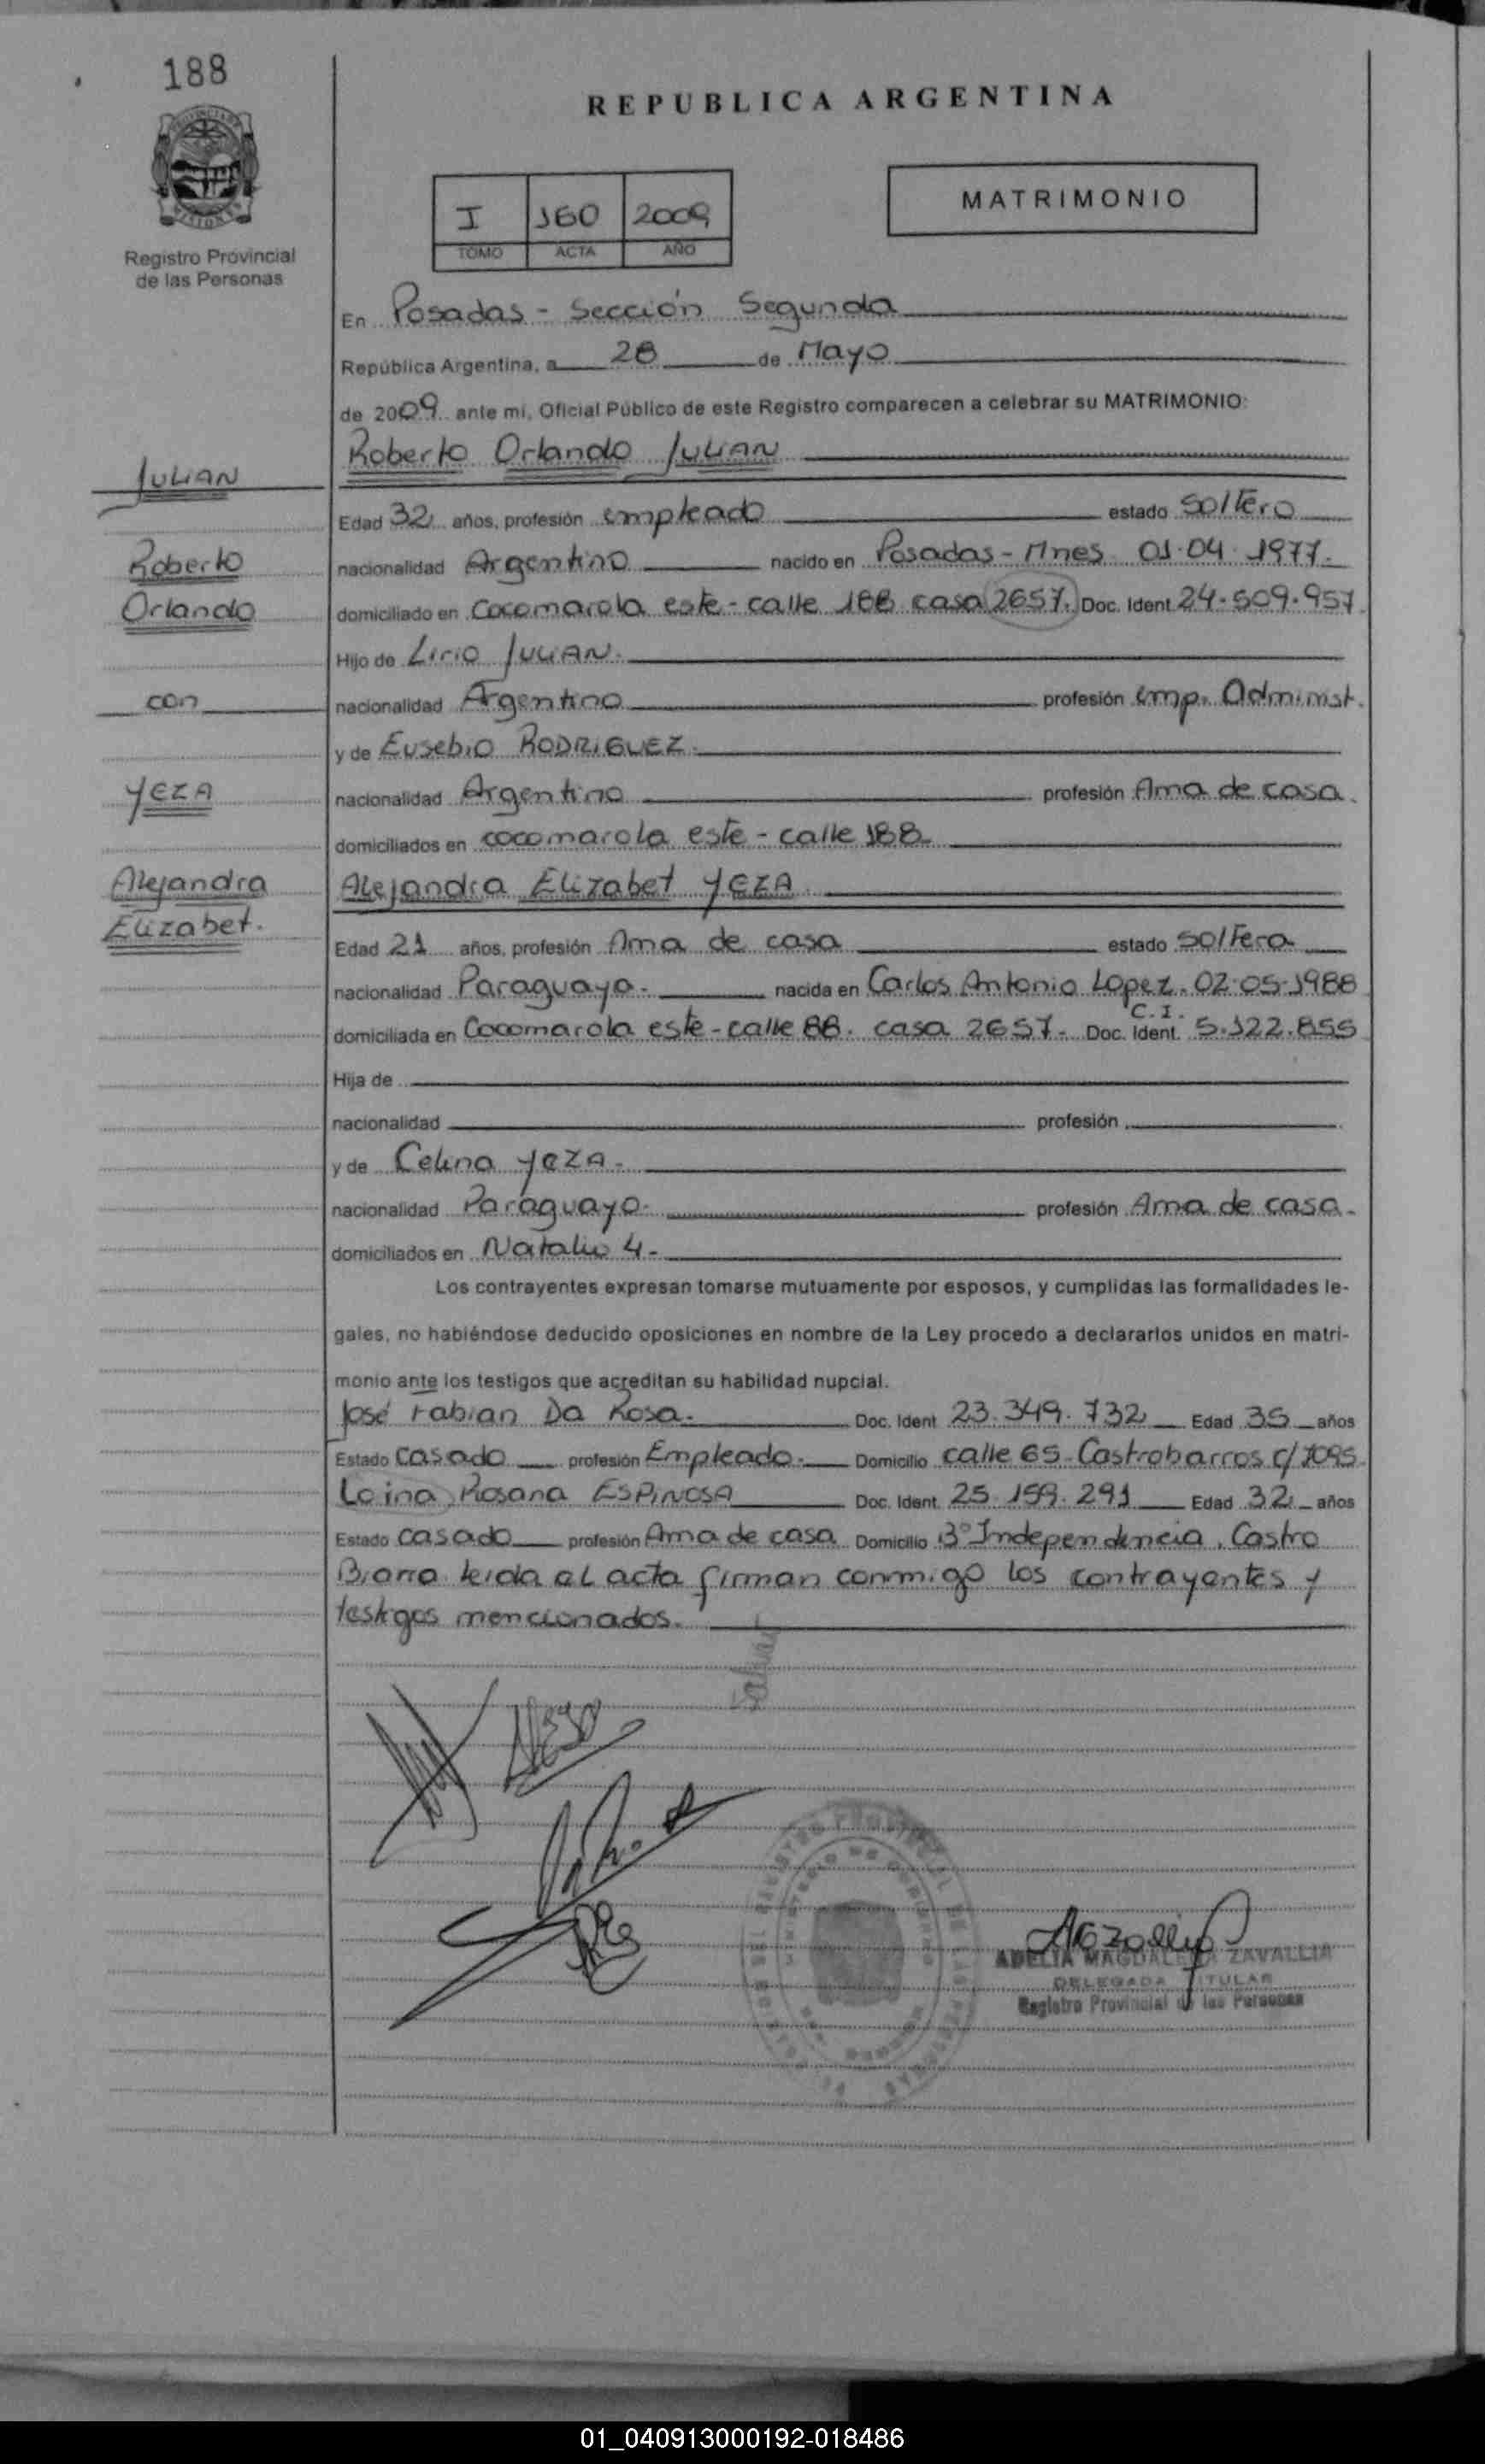 188
REPUBLICA ARGENTINA
MATRIMONIO
I 160 2009
TOMO ACTA AÑO
Registro Provincial
de las Personas
En Posadas - Sección Segunda
República Argentina, a 28 de Mayo
de 2009 ante mi, Oficial Público de este Registro comparecen a celebrar su MATRIMONIO:
Roberto Orlando JULIAN
JULIAN
Edad 32 años, profesión empleado estado soltero
Roberto
nacionalidad Argentino nacido en Posadas - Mnes 01.04.1977.
Orlando
domiciliado en Cocomarola este - calle 188 casa 2657. Doc. Ident 24.509.957
Hijo de Lirio JULIAN.
con
nacionalidad Argentino profesión emp. Administ.
y de Eusebio RODRIGUEZ.
YEZA
nacionalidad Argentino profesión Ama de casa.
domiciliados en cocomarola este - calle 188
Alejandra
Alejandra Elizabet YEZA
Elizabet.
Edad 21 años, profesión Ama de casa estado soltera
nacionalidad Paraguaya. nacida en Carlos Antonio Lopez. 02.05.1988
domiciliada en Cocomarola este - calle 88. casa 2657. Doc. Ident. C.I. 5.122.855
Hija de
nacionalidad profesión
y de Celina YEZA.
nacionalidad Paraguaya. profesión Ama de casa.
domiciliados en Natalio 4.
Los contrayentes expresan tomarse mutuamente por esposos, y cumplidas las formalidades le-
gales, no habiéndose deducido oposiciones en nombre de la Ley procedo a declararlos unidos en matri-
monio ante los testigos que acreditan su habilidad nupcial.
José Fabian Da Rosa. Doc. Ident 23.349.732 Edad 35 años
Estado casado profesión Empleado. Domicilio calle 65 - Castrobarros c/ 1095
Rosana ESPINOSA Doc. Ident. 25.159.291 Edad 32 años
Estado casado profesión Ama de casa Domicilio B° Independencia, Castro
leida el acta firman conmigo los contrayentes y
testigos mencionados.
ADELIA MAGDALENA ZAVALLIA
DELEGADA TITULAR
Registro Provincial de las Personas
01_040913000192-018486